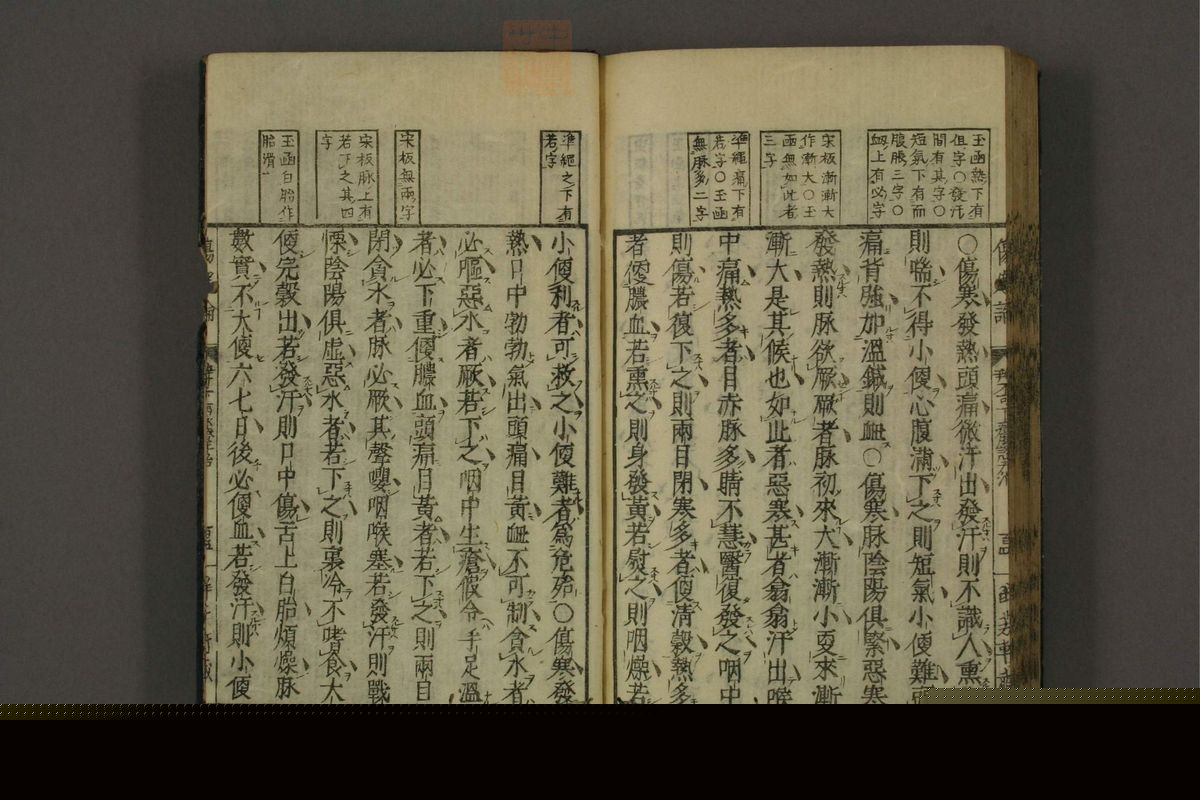 玉函熱下有
但字○發汗
間有其字○
短氣下有而
腹脹三字○
衄上有必字
宋板漸漸大
作漸大○玉
函無如此者
三字
準繩痛下有
若字○玉函
無脉多二字
○傷寒發熱頭痛微汗出發汗則不識人熏
則喘不得小便心腹滿下之則短氣小便難
痛背強加溫鍼則衄○傷寒脉陰陽俱緊惡寒
發熱則脉欲厥厥者脉初來大漸漸小更來漸
漸大是其候也如此者惡寒甚者翕翕汗出喉
中痛熱多者目赤脉多睛不慧醫復發之咽中
則傷若復下之則兩目閉寒多者便清穀熱多
者便膿血若熏之則身發黃若熨之則咽燥若
準繩之下有
若字
宋板無兩字
宋板脉上有
若下之其四
字
玉函白胎作
胎滑
小便利者可救之小便難者爲危殆○傷寒發
熱口中勃勃氣出頭痛目黃衄不可制貪水者
必嘔惡水者厥若下之咽中生瘡假令手足溫
者必下重便膿血頭痛目黃者若下之則兩目
閉貪水者脉必厥其聲嚶咽喉塞若發汗則戰
慄陰陽俱虛惡水者若下之則裏冷不嗜食大
便完穀出若發汗則口中傷舌上白胎煩燥脉
數實不大便六七日後必便血若發汗則小便